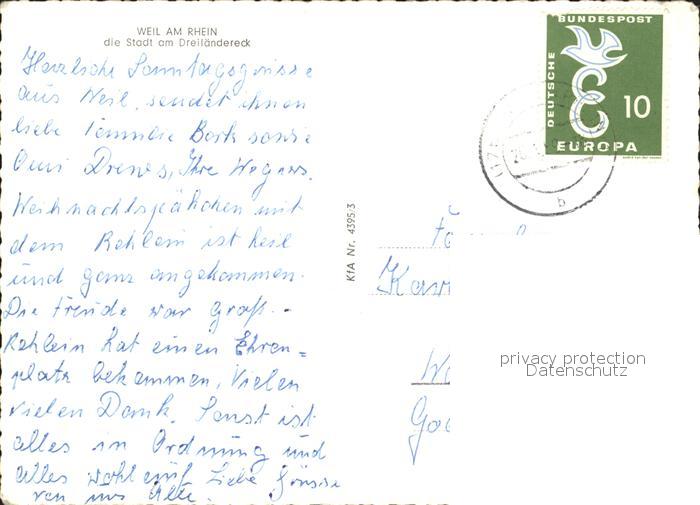 WEIL AM RHEIN
die Stadt am Dreiländereck
Herzliche Sonntagsgrüsse
aus Weil, sendet ihnen
liebe Familie Bork sowie
Omi Drews, Ihre Wegers.
Weihnachtspäkchen mit
dem Rehlein ist heil
und ganz angekommen.
Die Freude war groß. -
Rehlein hat einen Ehren=
platz bekommen, Vielen
vielen Dank. Sonst ist
alles in Ordnung und
alles wohlauf Liebe Grüsse
von uns Alle.
KfA Nr. 4395/3
DEUTSCHE
BUNDESPOST
10
EUROPA
b
Fa
Kar
privacy protection
Datenschutz